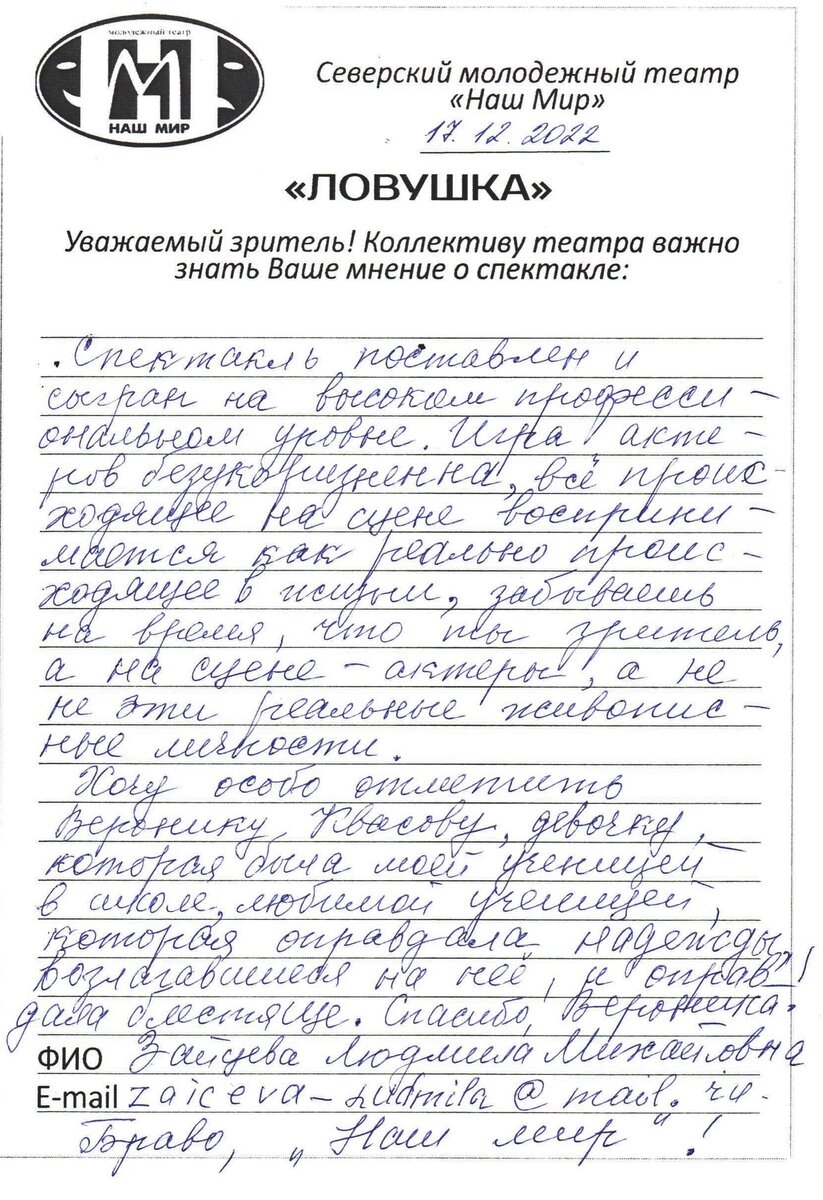 молодежный театр
НАШ МИР
Северский молодежный театр
«Наш Мир»
17.12.2022
«ЛОВУШКА»
Уважаемый зритель! Коллективу театра важно
знать Ваше мнение о спектакле:
Спектакль поставлен и
сыгран на высоком професси-
ональном уровне. Игра акте-
ров безукоризненна, всё проис-
ходящее на сцене восприни-
мается как реально проис-
ходящее в жизни, забываешь
на время, что ты зритель,
а на сцене - актеры, а не
не эти реальные живопис-
ные личности.
Хочу особо отметить
Веронику Квасову, девочку,
которая была моей ученицей
в школе, любимой ученицей,
которая оправдала надежды,
возлагавшиеся на неё, и оправ-
дала блестяще. Спасибо, Вероника!
ФИО Зайцева Людмила Михайловна
E-mail zaiceva-ludmila@mail.ru.
Браво, „Наш мир"!